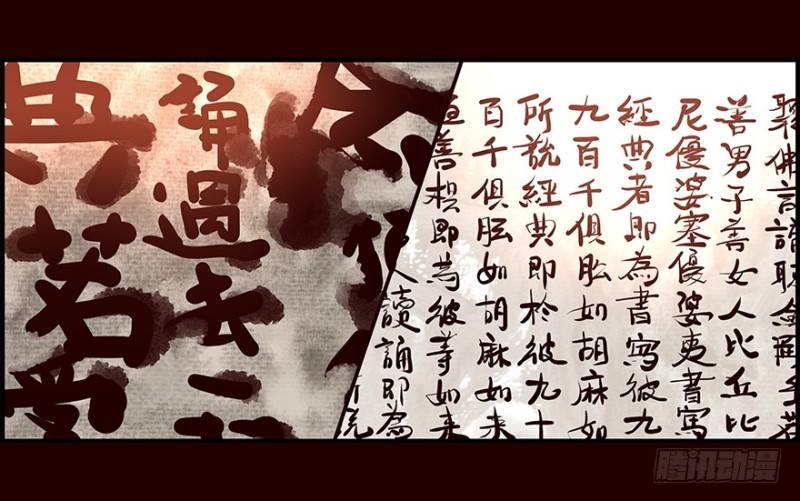 善男子善女人比丘比
尼優婆塞優婆夷書寫
經典者即為書寫彼九
九百千俱胝如胡麻如
所說經典即於彼九十
百千俱胝如胡麻如来
善根即為彼等如来
人讀誦即為
誦過去一
典若受
腾讯动漫